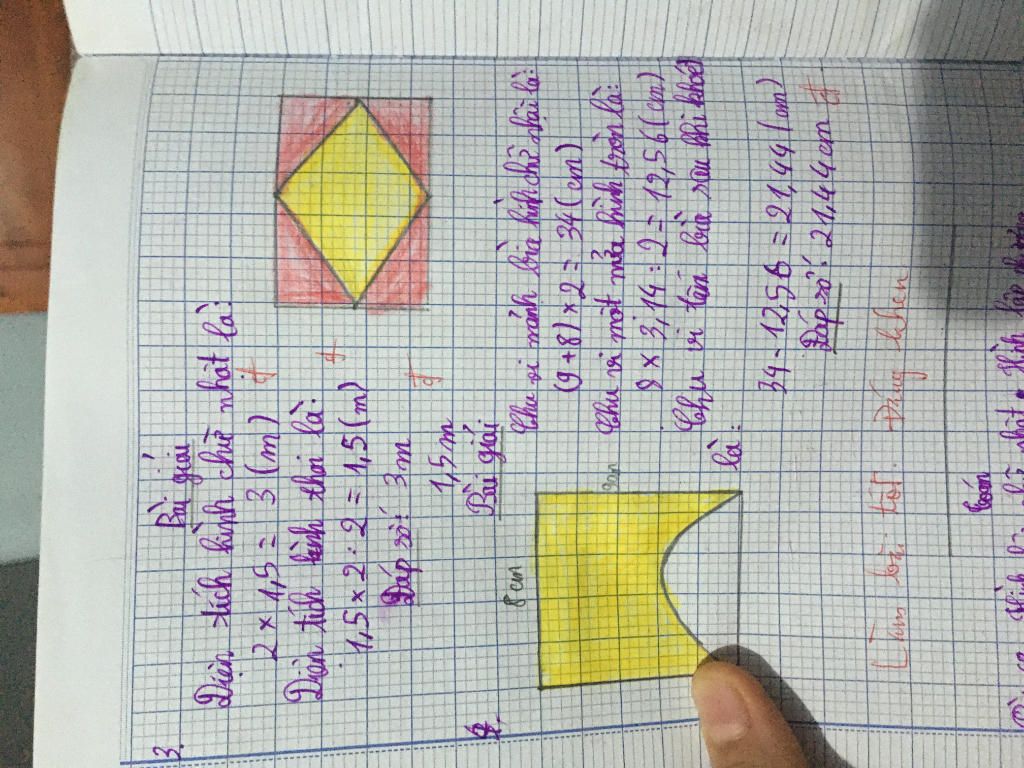 3.
Bài giải
Diện tích hình chữ nhật là:
2 x 1,5 = 3 (m)
Diện tích hình thoi là:
1,5 x 2 : 2 = 1,5 (m)
Đáp số: 3m
1,5m
4.
Bài giải
8 cm
9cm
Chu vi mảnh bìa hình chữ nhật là:
(9+8) x 2 = 34 (cm)
Chu vi một nửa hình tròn là:
8 x 3,14 : 2 = 12,56 (cm)
Chu vi tấm bìa sau khi khoét
là:
34 - 12,56 = 21,44 (cm)
Đáp số: 21,44cm
Làm bài tốt. Đáng khen
toán